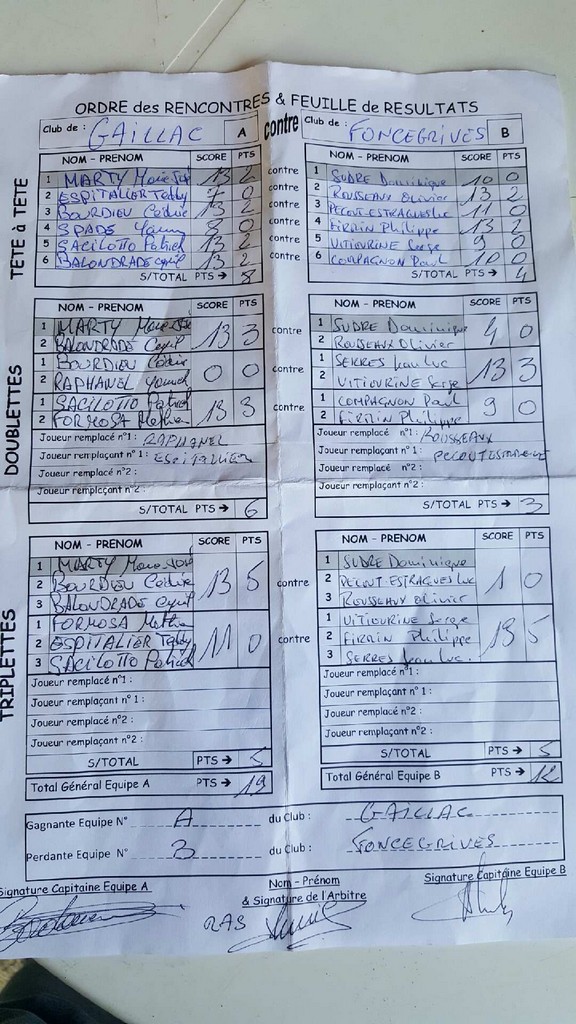 ORDRE des RENCONTRES & FEUILLE de RESULTATS
Club de : GAILLAC A contre Club de : FONCEGRIVES B
TETE à TETE
NOM - PRENOM SCORE PTS NOM - PRENOM SCORE PTS
1 MARTY 13 2 contre 1 SUDRE Dominique 10 0
2 ESPITALIER Teddy 7 0 contre 2 ROUSSEAUX Olivier 13 2
3 BOURDIEU Cédric 13 2 contre 3 PECOUT-ESTRAGUES Luc 11 0
4 SPADE 8 0 contre 4 FIRMIN Philippe 13 2
5 SACILOTTO Patrick 13 2 contre 5 VITIOURINE Serge 9 0
6 BALONDRADE Cyril 13 2 contre 6 COMPAGNON Paul 10 0
S/TOTAL PTS → 8 S/TOTAL PTS → 4
DOUBLETTES
NOM - PRENOM SCORE PTS NOM - PRENOM SCORE PTS
1 MARTY 13 3 contre 1 SUDRE Dominique 4 0
2 BALONDRADE Cyril 2 ROUSSEAUX Olivier
1 BOURDIEU Cédric 0 0 contre 1 SERRES Jean Luc 13 3
2 RAPHANEL 2 VITIOURINE Serge
1 SACILOTTO Patrick 13 3 contre 1 COMPAGNON Paul 9 0
2 FORMOSA 2 FIRMIN Philippe
Joueur remplacé n°1 : RAPHANEL Joueur remplacé n°1 : ROUSSEAUX
Joueur remplaçant n° 1 : ESPITALIER Joueur remplaçant n°1 :
Joueur remplacé n°2 : Joueur remplacé n°2 :
Joueur remplaçant n°2 : Joueur remplaçant n°2 :
S/TOTAL PTS → 6 S/TOTAL PTS → 3
TRIPLETTES
NOM - PRENOM SCORE PTS NOM - PRENOM SCORE PTS
1 MARTY 1 SUDRE Dominique
2 BOURDIEU Cédric 13 5 contre 2 PECOUT ESTRAGUES Luc 1 0
3 BALONDRADE Cyril 3 ROUSSEAUX Olivier
1 FORMOSA 1 VITIOURINE Serge
2 ESPITALIER Teddy 11 0 contre 2 FIRMIN Philippe 13 5
3 SACILOTTO Patrick 3 SERRES Jean Luc.
Joueur remplacé n°1 : Joueur remplacé n°1 :
Joueur remplaçant n° 1 : Joueur remplaçant n°1 :
Joueur remplacé n°2 : Joueur remplacé n°2 :
Joueur remplaçant n°2 : Joueur remplaçant n°2 :
S/TOTAL PTS → 5 S/TOTAL PTS → 5
Total Général Equipe A PTS → 19 Total Général Equipe B PTS → 12
Gagnante Equipe N° A du Club : GAILLAC
Perdante Equipe N° B du Club : FONCEGRIVES
Signature Capitaine Equipe A Nom - Prénom & Signature de l'Arbitre Signature Capitaine Equipe B
RAS